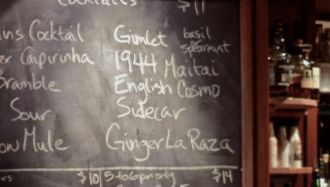 Cocktails $11
ins Cocktail Gimlet basil spearmint
er Capirinha 1944 Maitai
Bramble English Cosmo
Sour Sidecar
on Mule Ginger La Raza
es $10 5-to 6pm only $14